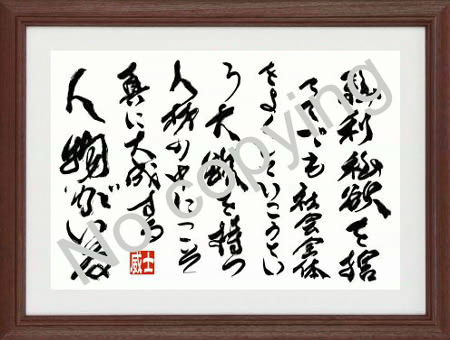 私利私欲を捨
ててでも社会全体
をよくしていこうとい
う大欲を持つ
人材の中にこそ
真に大成する
人物がいる
威士
No copying